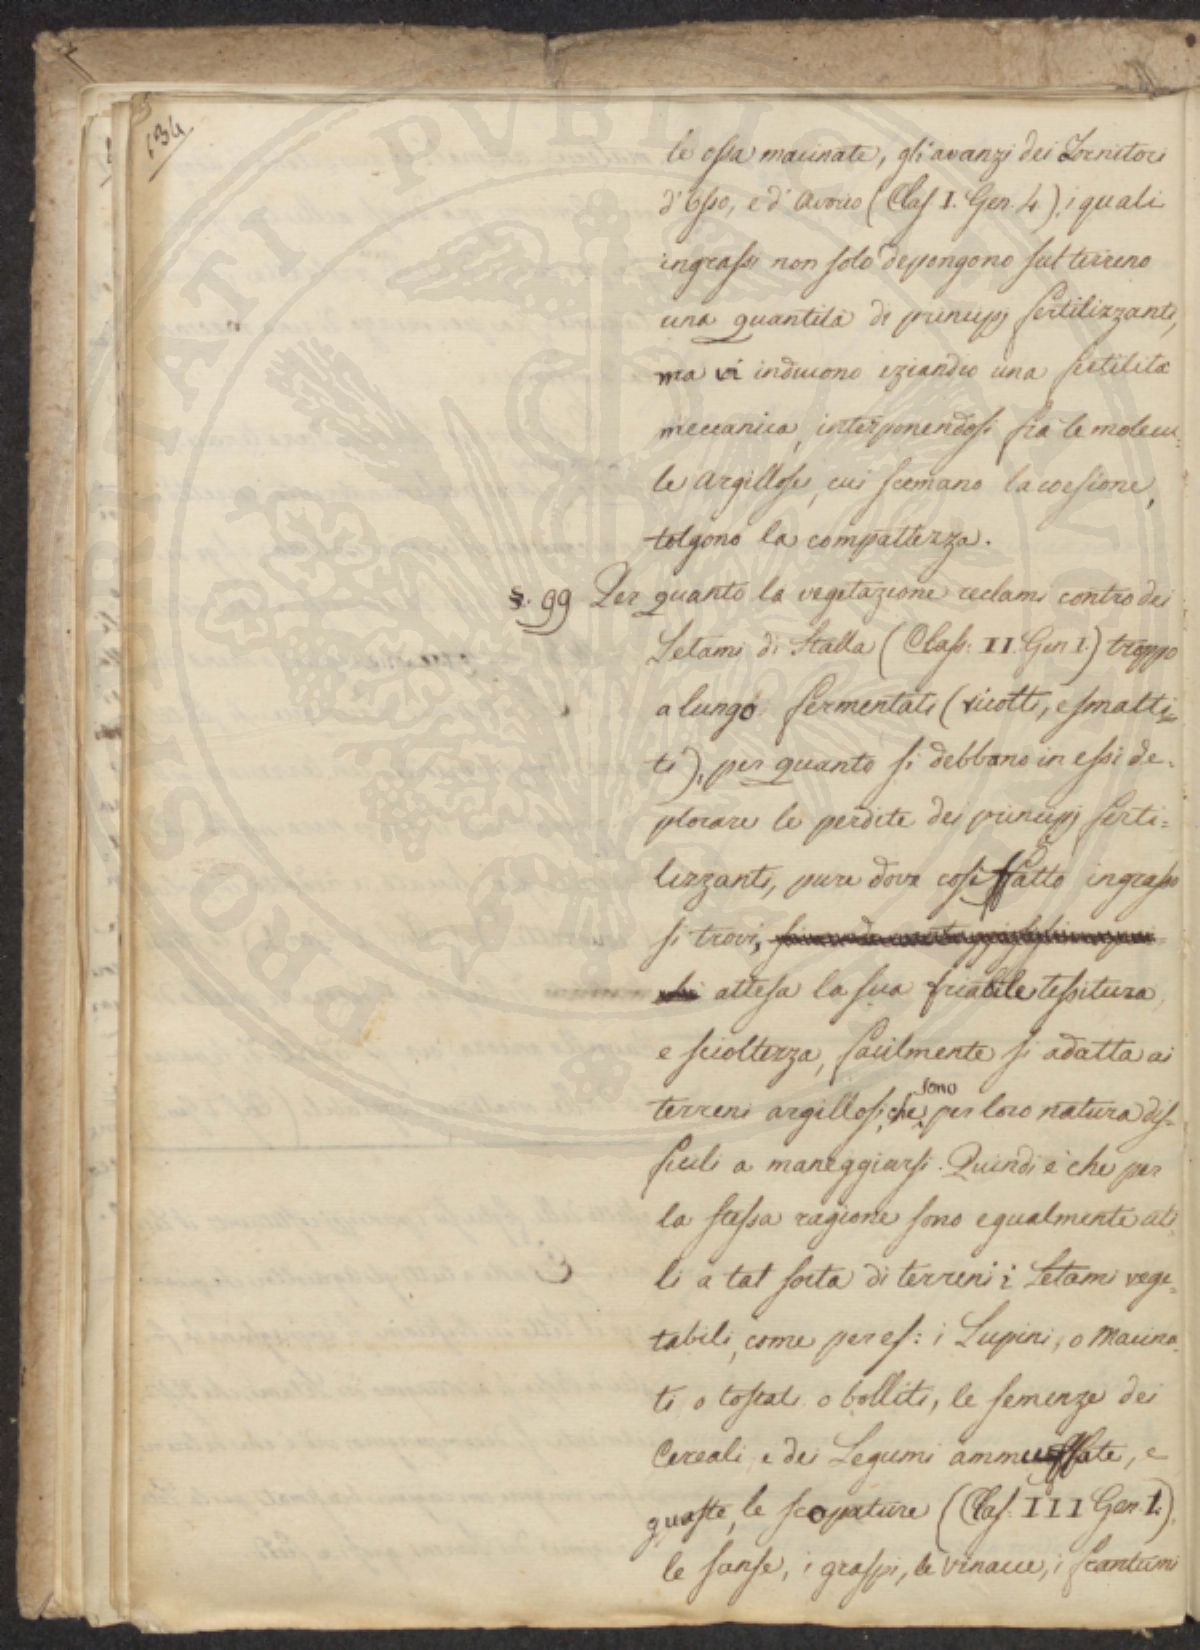 134
le ossa macinate, gli avanzi dei Tornitori
d'Osso, e d'Avorio (Clas. I. Gen. 4.), i quali
ingrassi non solo depongono sul terreno
una quantità di principj fertilizzanti,
ma vi inducono eziandio una fertilità
meccanica, interponendosi fra le molecu-
le argillose, cui scemano la coesione,
tolgono la compattezza.
§. 99 Per quanto la vegetazione reclami contro dei
Letami di Stalla (Class: II. Gen I.) troppo
a lungo fermentati (ricotti, e smalti-
ti), per quanto si debbano in essi de-
plorare le perdite dei principj ferti=
lizzanti, pure dove così ffatto ingrasso
si trovi,
attesa la sua friabile tessitura,
e scioltezza, facilmente si adatta ai
terreni argillosi, che sono per loro natura dif-
ficili a maneggiarsi. Quindi è che per
la stessa ragione sono egualmente uti
li a tal sorta di terreni i Letami vege-
tabili, come per es: i Lupini, o macina-
ti o tostati o bolliti, le semenze dei
Cereali, e dei Legumi ammuffate, e
guaste, le scopature (Clas: III Gen. I.),
le sanse, i graspi, le vinacce, i frantumi
PROSPERITATI PVBLICAE